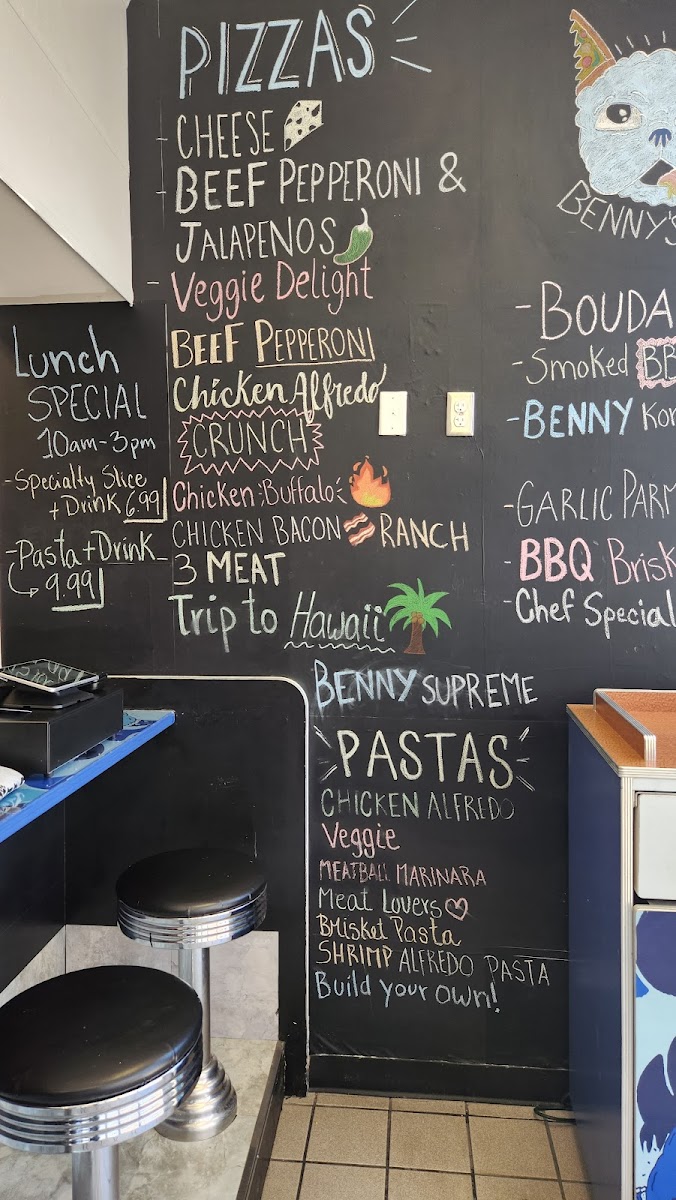 PIZZAS
CHEESE
BEEF PEPPERONI &
JALAPENOS
Veggie Delight
BEEF PEPPERONI
Chicken Alfredo
CRUNCH
Chicken Buffalo
CHICKEN BACON RANCH
3 MEAT
Trip to Hawaii
BENNY SUPREME
PASTAS
CHICKEN ALFREDO
Veggie
MEATBALL MARINARA
Meat Lovers
Brisket Pasta
SHRIMP ALFREDO PASTA
Build your own!
Lunch
SPECIAL
10am-3pm
-Specialty Slice
+Drink 6.99
-Pasta+Drink
9.99
BENNY'S
-BOUDA
-Smoked BB
-BENNY Kor
-GARLIC PARM
-BBQ Brisk
-Chef Special